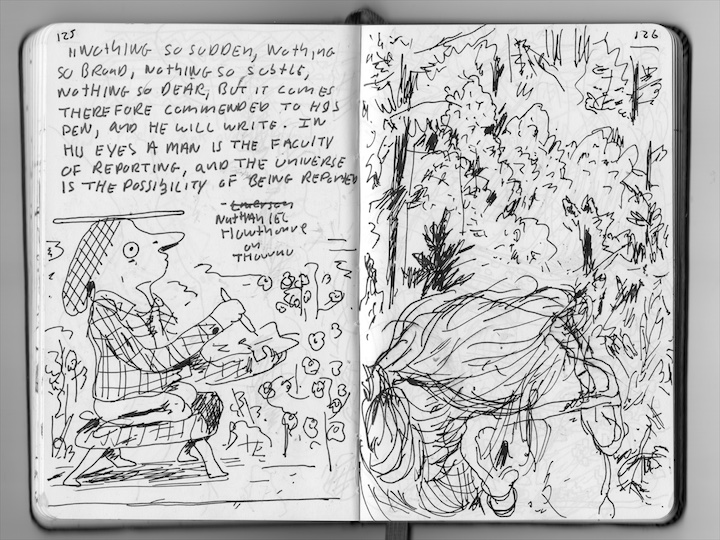 125
"NOTHING SO SUDDEN, NOTHING
SO BROAD, NOTHING SO SUBTLE,
NOTHING SO DEAR, BUT IT COMES
THEREFORE COMMENDED TO HIS
PEN, AND HE WILL WRITE. IN
HIS EYES A MAN IS THE FACULTY
OF REPORTING, AND THE UNIVERSE
IS THE POSSIBILITY OF BEING REPORTED
- Emerson
NATHANIEL
HAWTHORNE
ON
THOREAU
126